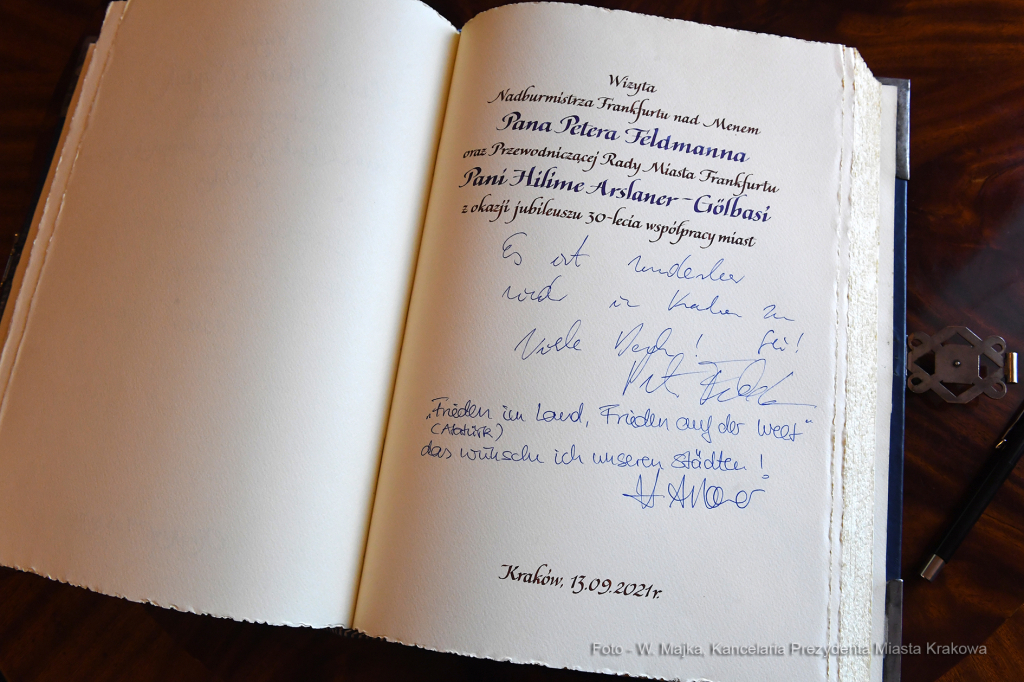 Wizyta
Nadburmistrza Frankfurtu nad Menem
Pana Petera Feldmanna
oraz Przewodniczącej Rady Miasta Frankfurtu
Pani Hilime Arslaner-Gölbasi
z okazji jubileuszu 30-lecia współpracy miast
Es ist wunderbar
wieder in Krakau zu
Viele
"Frieden im Land, Frieden auf der Welt"
(Atatürk)
das wünsche ich unseren Städten!
Kraków, 13.09.2021 r.
Foto - W. Majka, Kancelaria Prezydenta Miasta Krakowa